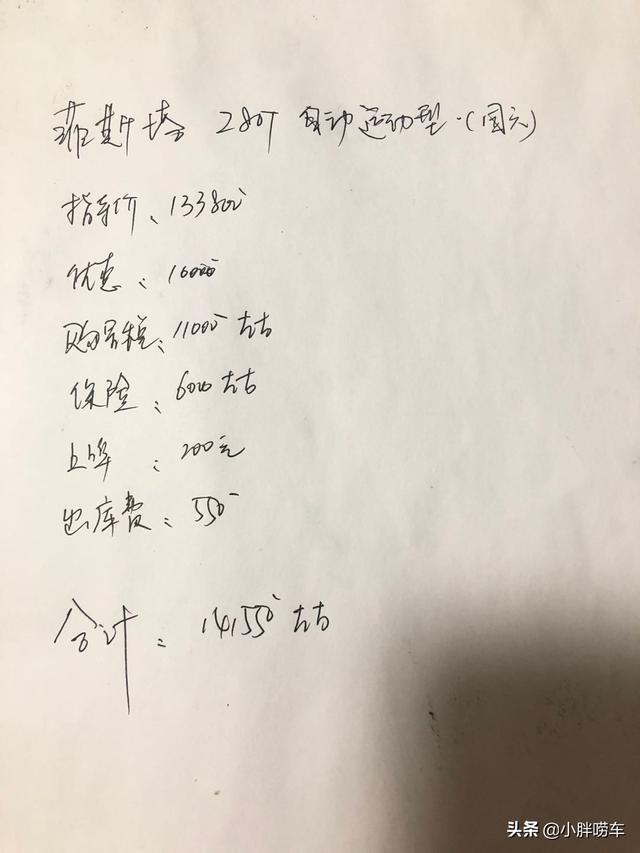 菲斯塔 280T 自动运动型.(国六)
指导价:133800
优惠:10000
购置税:11000左右
保险:6000左右
上牌:200元
出库费:550
合计:141550左右
头条 @小胖唠车